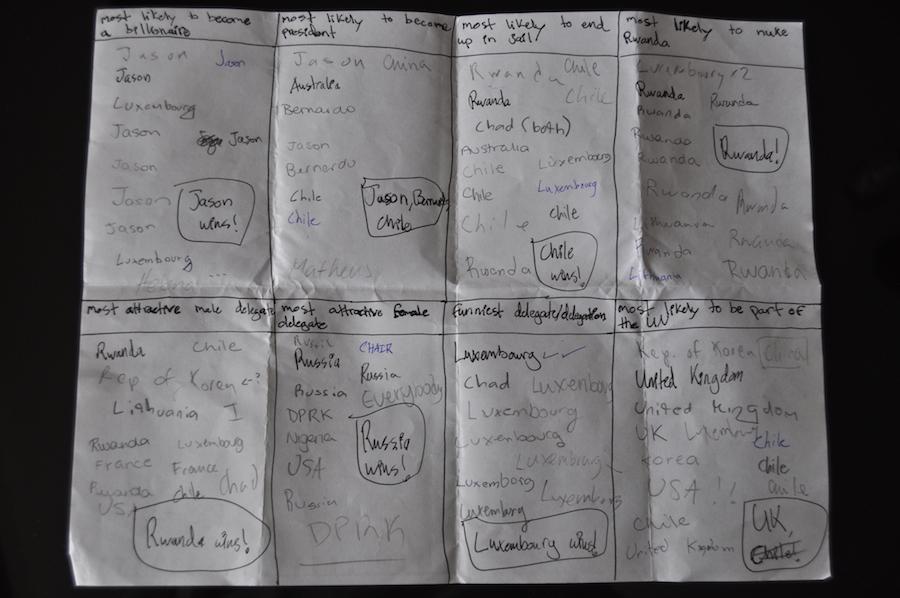 most likely to become
a billionaire
Jason Jason
Jason
Luxembourg
Jason
Jason
Jason
Jason
Jason
Luxembourg
Jason
wins!
most likely to become
president
Jason China
Australia
Bernardo
Jason
Bernardo
Chile
Chile
Matheus
Jason, Bernardo,
Chile
most likely to end
up in jail!
Rwanda Chile
Rwanda Chile
Chad (both)
Australia
Chile Luxembourg
Chile Luxembourg
Chile Chile
Rwanda
Chile
wins!
most likely to nuke
Rwanda
Luxembourg x2
Rwanda Rwanda
Rwanda
Rwanda
Rwanda
Rwanda Rwanda
Lithuania
Rwanda Rwanda
Lithuania Rwanda
Rwanda!
most attractive male delegate
Rwanda Chile
Rep of Korea <-?
Lithuania I
Rwanda Luxembourg
France France
Rwanda Chile Chad
USA
Rwanda wins!
most attractive female
delegate
Russia CHAIR
Russia Russia
Russia Everybody
DPRK
Nigeria
USA
Russia
DPRK
Russia
wins!
funniest delegate/delegation
Luxembourg
Chad Luxembourg
Luxembourg
Luxembourg
Luxembourg
Luxembourg Luxembourg
Luxembourg
Luxembourg wins!
most likely to be part of
the UN
Rep. of Korea China
United Kingdom
United Kingdom
UK Luxembourg Chile
Korea Chile
USA!! Chile
Chile
United Kingdom
UK,